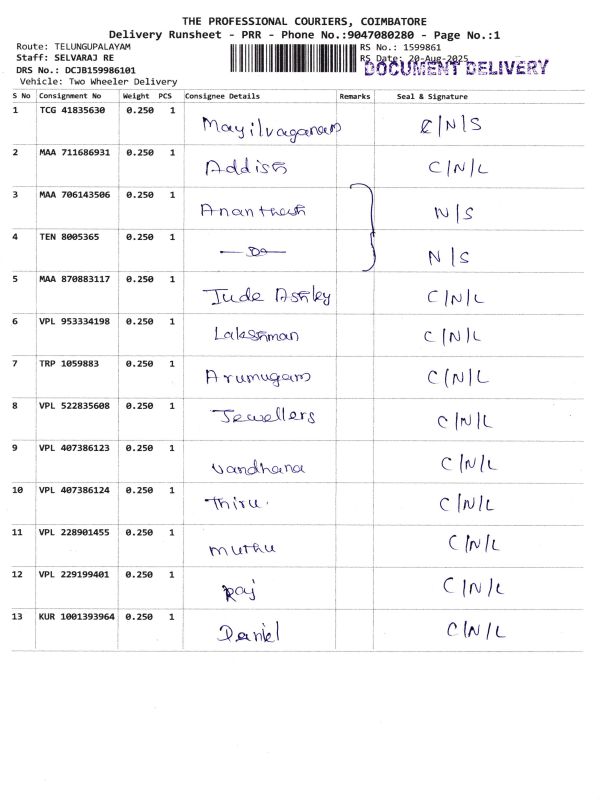 THE PROFESSIONAL COURIERS, COIMBATORE
Delivery Runsheet - PRR - Phone No.:9047080280 - Page No.:1
Route: TELUNGUPALAYAM RS No.: 1599861
Staff: SELVARAJ RE RS Date: 20-Aug-2025
DRS No.: DCJB159986101 DOCUMENT DELIVERY
Vehicle: Two Wheeler Delivery
S No Consignment No Weight PCS Consignee Details Remarks Seal & Signature
1 TCG 41835630 0.250 1 Mayilvaganam C/N/S
2 MAA 711686931 0.250 1 Addish C/N/L
3 MAA 706143506 0.250 1 Ananthesh N/S
4 TEN 8005365 0.250 1 —Do— N/S
5 MAA 870883117 0.250 1 Jude Ashley C/N/L
6 VPL 953334198 0.250 1 Lakshman C/N/L
7 TRP 1059883 0.250 1 Arumugam C/N/L
8 VPL 522835608 0.250 1 Jewellers C/N/L
9 VPL 407386123 0.250 1 Vandhana C/N/L
10 VPL 407386124 0.250 1 Thiru. C/N/L
11 VPL 228901455 0.250 1 Muthu C/N/L
12 VPL 229199401 0.250 1 Raj C/N/L
13 KUR 1001393964 0.250 1 Daniel C/N/L